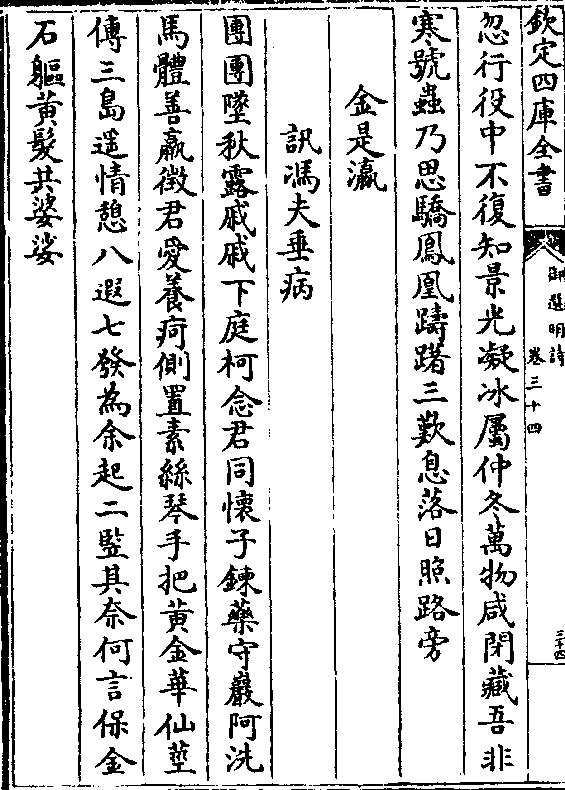 欽定四庫全書
御選明詩
卷三十四
三十四
忽行役中不復知景光凝冰屬仲冬萬物咸閉藏吾非
寒號蟲乃思驕鳳凰躊躇三歎息落日照路旁
金是瀛
訊馮夫垂病
團團墜秋露戚戚下庭柯念君同懷子鍊藥守巖阿洗
馬體善羸徵君愛養疴側置素絲琴手把黃金華仙莖
傳三島遥情憩八遐七發為余起二監其奈何言保金
石軀黃髮共婆娑